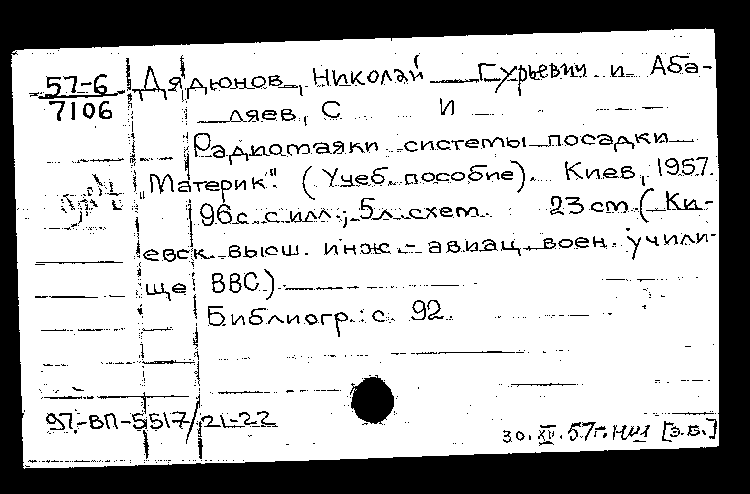 57-6
7106
Дядюнов, Николай Гурьевич и Аба-
ляев, С И
Радиомаяки системы посадки
„Материк". (Учеб. пособие). Киев, 1957.
96 с. с илл.; 5 л. схем. 23 cm. (Ки-
евск. высш. инж.-авиац. воен. учили-
ще ВВС.)
Библиогр.: с. 92.
97-ВП-5517/21-22
30.XII.57г. НИИ [з.Б.]